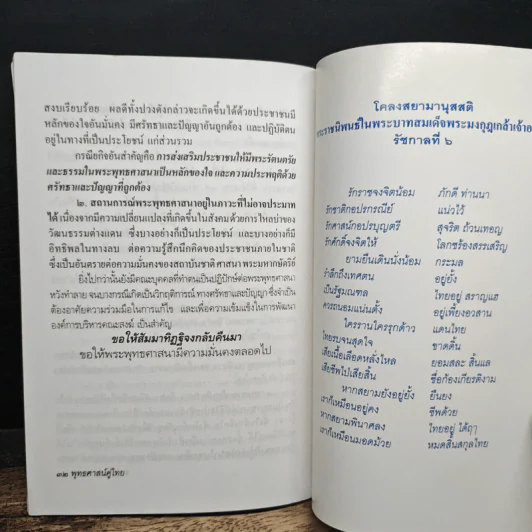 สงบเรียบร้อย ผลดีทั้งปวงดังกล่าวจะเกิดขึ้นได้ด้วยประชาชนมี
หลักของใจอันมั่นคง มีศรัทธาและปัญญาอันถูกต้อง และปฏิบัติตน
อยู่ในทางที่เป็นประโยชน์ แก่ส่วนรวม
กรณียกิจอันสำคัญคือ การส่งเสริมประชาชนให้มีพระรัตนตรัย
และธรรมในพระพุทธศาสนาเป็นหลักของใจ และความประพฤติด้วย
ศรัทธาและปัญญาที่ถูกต้อง
๒. สถานการณ์พระพุทธศาสนาอยู่ในภาวะที่ไม่อาจประมาท
ได้ เนื่องจากมีความเปลี่ยนแปลงที่เกิดขึ้นในสังคมด้วยการไหลบ่าของ
วัฒนธรรมต่างแดน ซึ่งบางอย่างก็เป็นประโยชน์ และบางอย่างก็มี
อิทธิพลในทางลบ ต่อความรู้สึกนึกคิดของประชาชนภายในชาติ
ซึ่งเป็นอันตรายต่อความมั่นคงของสถาบันชาติ ศาสนา พระมหากษัตริย์
ยิ่งไปกว่านั้นยังมีคณะบุคคลที่ทำตนเป็นปฏิปักษ์ต่อพระพุทธศาสนา
หวังทำลาย จนบางกรณีเกิดเป็นวิกฤติการณ์ ทางศรัทธาและปัญญา ซึ่งจำเป็น
ต้องอาศัยความร่วมมือในการแก้ไข และเพื่อความเข้มแข็งในการพัฒนา
องค์การบริหารคณะสงฆ์ เป็นสำคัญ
ขอให้สัมมาทิฏฐิจงกลับคืนมา
ขอให้พระพุทธศาสนามีความมั่นคงตลอดไป
๓๒ พุทธศาสน์คู่ไทย
โคลงสยามานุสสติ
ราชนิพนธ์ในพระบาทสมเด็จพระมงกุฎเกล้าเจ้าอ
รัชกาลที่ ๖
รักราชจงจิตน้อม ภักดี ท่านนา
รักชาติกอปรกรณีย์ แน่วไว้
รักศาสน์กอปรบุญตรี สุจริต ถ้วนเทอญ
รักศักดิ์จงจิตให้ โลกซ้องสรรเสริญ
ยามยืนเดินนั่งน้อม กระมล
รำลึกถึงเทศตน อยู่ยั้ง
เป็นรัฐมณฑล ไทยอยู่ สราญแฮ
ควรถนอมแน่นตั้ง อยู่เพี้ยงอวสาน
ใครรานใครรุกด้าว แดนไทย
ไทยรบจนสุดใจ ขาดดิ้น
เสียเนื้อเลือดหลั่งไหล ยอมสละ สิ้นแล
เสียชีพไป่เสียสิ้น ชื่อก้องเกียรติงาม
หากสยามยังอยู่ยั้ง ยืนยง
เราก็เหมือนอยู่คง ชีพด้วย
หากสยามพินาศลง ไทยอยู่ ได้ฤา
เราก็เหมือนมอดม้วย หมดสิ้นสกุลไทย